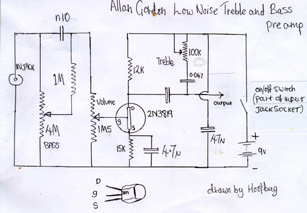 Allan Gordon Low Noise Treble and Bass
Pre amp
n10
100k
Treble
IN JACK
1M
12K
0.047
Volume
output
on/off switch
(part of input
JACK SOCKET)
2N3819
4M
BASS
1M5
47N
+
9V
-
15K
4.7N
D
g
S
drawn by Hoofbag